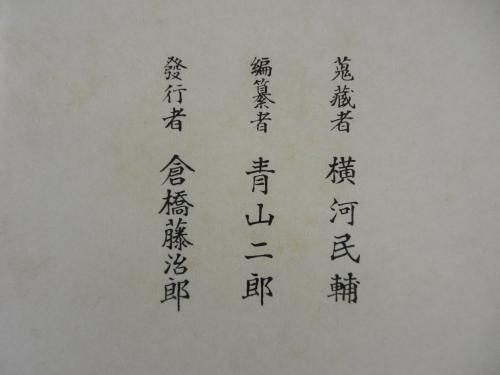 蒐藏者 橫河民輔
編纂者 青山二郎
發行者 倉橋藤治郎